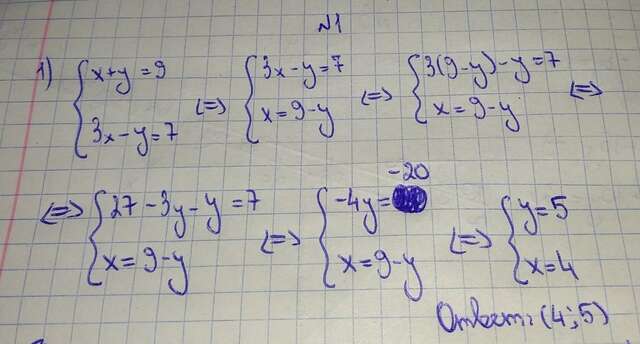 №1
1) { x+y=9 3x-y=7 <=> { 3x-y=7 x=9-y <=> { 3(9-y)-y=7 x=9-y <=>
<=> { 27-3y-y=7 x=9-y <=> { -4y=-20 x=9-y <=> { y=5 x=4
Ответ: (4;5)